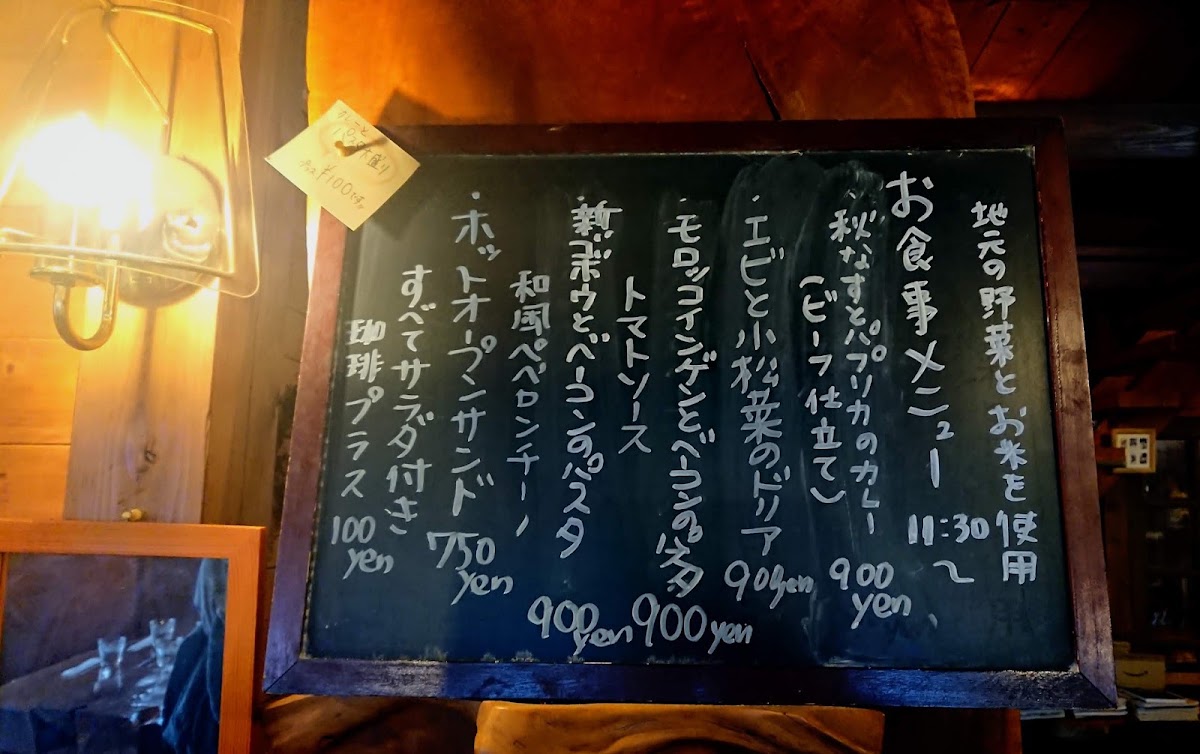 地元の野菜とお米を使用
お食事メニュー 11:30〜
・秋なすとパプリカのカレー 900yen
(ビーフ仕立て)
・エビと小松菜のドリア 900yen
・モロッコインゲンとベーコンのパスタ 900yen
トマトソース
・新ゴボウとベーコンのパスタ 900yen
和風ペペロンチーノ
・ホットオープンサンド 750yen
すべてサラダ付き
珈琲プラス 100yen
大盛り
¥100です